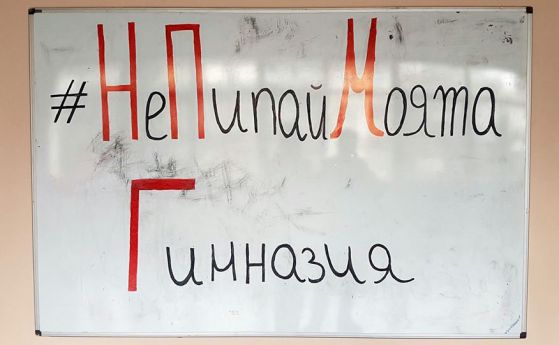 #НеПипайМоята
Гимназия